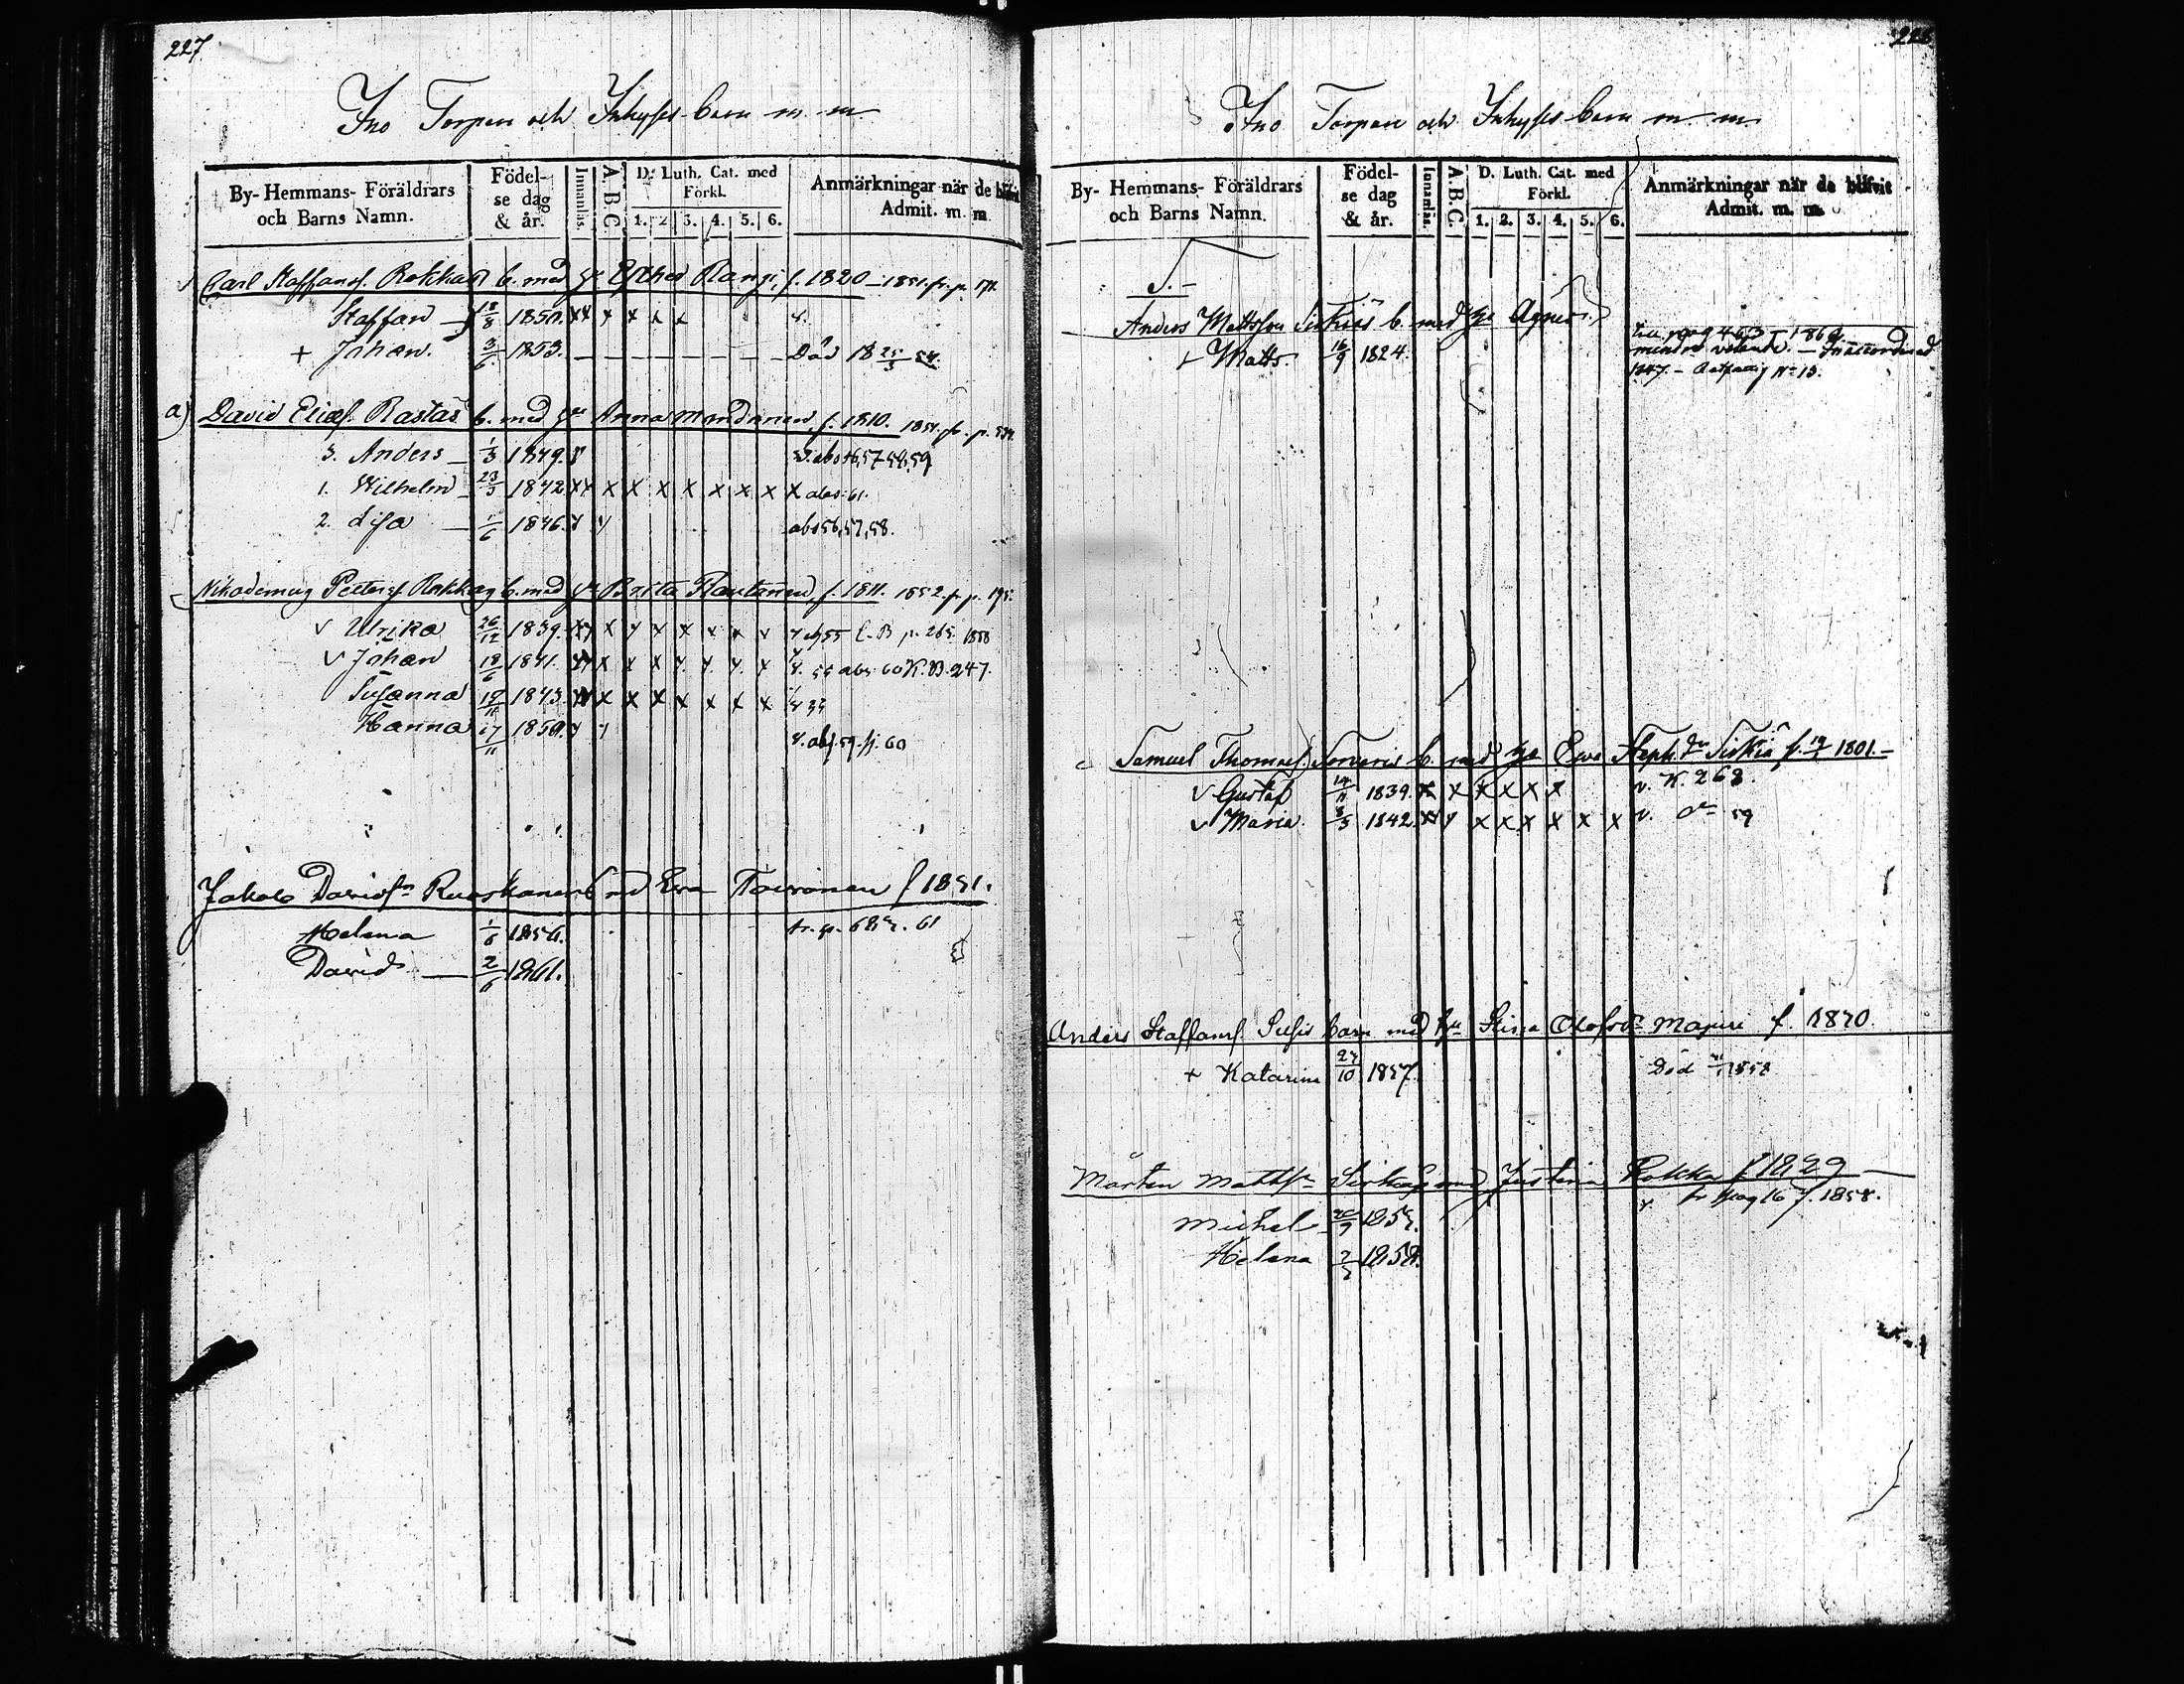 227.
Ino Torpare och Inhyses barn m. m.
By- Hemmans- Föräldrars och Barns Namn.
Födel-se dag & år.
Innanläs.
A. B. C.
D. Luth. Cat. med Förkl.
1. 2. 3. 4. 5. 6.
Anmärkningar när de blifvit Admit. m. m.
Carl Staffansf. Rokkas b. med hu Esther Rangi, f. 1820 — 1851. fr. p. 171.
Staffan 18/8 1850. x x x x x x
+ Johan. 3/6 1853. — — — — — — — Död 18 25/3 54.
a) David Eliæs. Rastas b. med hu Anna Mondonen, f. 1810. 1854. fr. p.
3. Anders 1/3 1849. abs 56, 57 58, 59
1. Wilhelm 23/3 1842 x x x x x x x x x x abs. 61.
2. Lisa 1/6 1846. abs 56, 57, 58.
Nikodemus Petersf. Rokkas b. med hu Brita Rautanen, f. 1811. 1852. fr. p. 195.
v Ulrika 26/12 1839. x x x x x x x x 55 p. 265. 1858
v Johan 18/6 1841. x x x x x x x x 55 abs. 60 K.B. 247.
Susanna 19/11 1843. x x x x x x x x
Hanna 17/11 1850. abs. 59. 60
Jakob Davidsn Ruoskanen b md Eva Toivonen f 1831.
Helena 1/6 1856. fr. p. 61
David — 2/6 1861.
Ino Torpare och Inhyses barn m. m.
By- Hemmans- Föräldrars och Barns Namn.
Födel-se dag & år.
Innanläs.
A. B. C.
D. Luth. Cat. med Förkl.
1. 2. 3. 4. 5. 6.
Anmärkningar när de blifvit Admit. m. m.
S. —
Anders Mattsson Sirkiäs b. med hu Agnes
+ Matts. 16/9 1824. till pag 463 — 1860.
mindre vetande. —
1847. —
Samuel Thomæs. Torveris b. med hu Ewa Steph. dr Sirkiä f. 19/7 1801. —
v Gustaf 14/11 1839. x x x x x x v. K. 268.
v Maria. 8/3 1842. x x x x x x x v. do 59
Anders Staffansf. Susis barn med hu Stina Olofsdr Majuri f. 1830.
+ Katarina 24/10 1857. Död 1858
Mårten Mattsn Sirkiäs med Justina Rokka f 1829 —
fr pag 167. 1858.
Michel 20/9 1854.
Helena 1858.